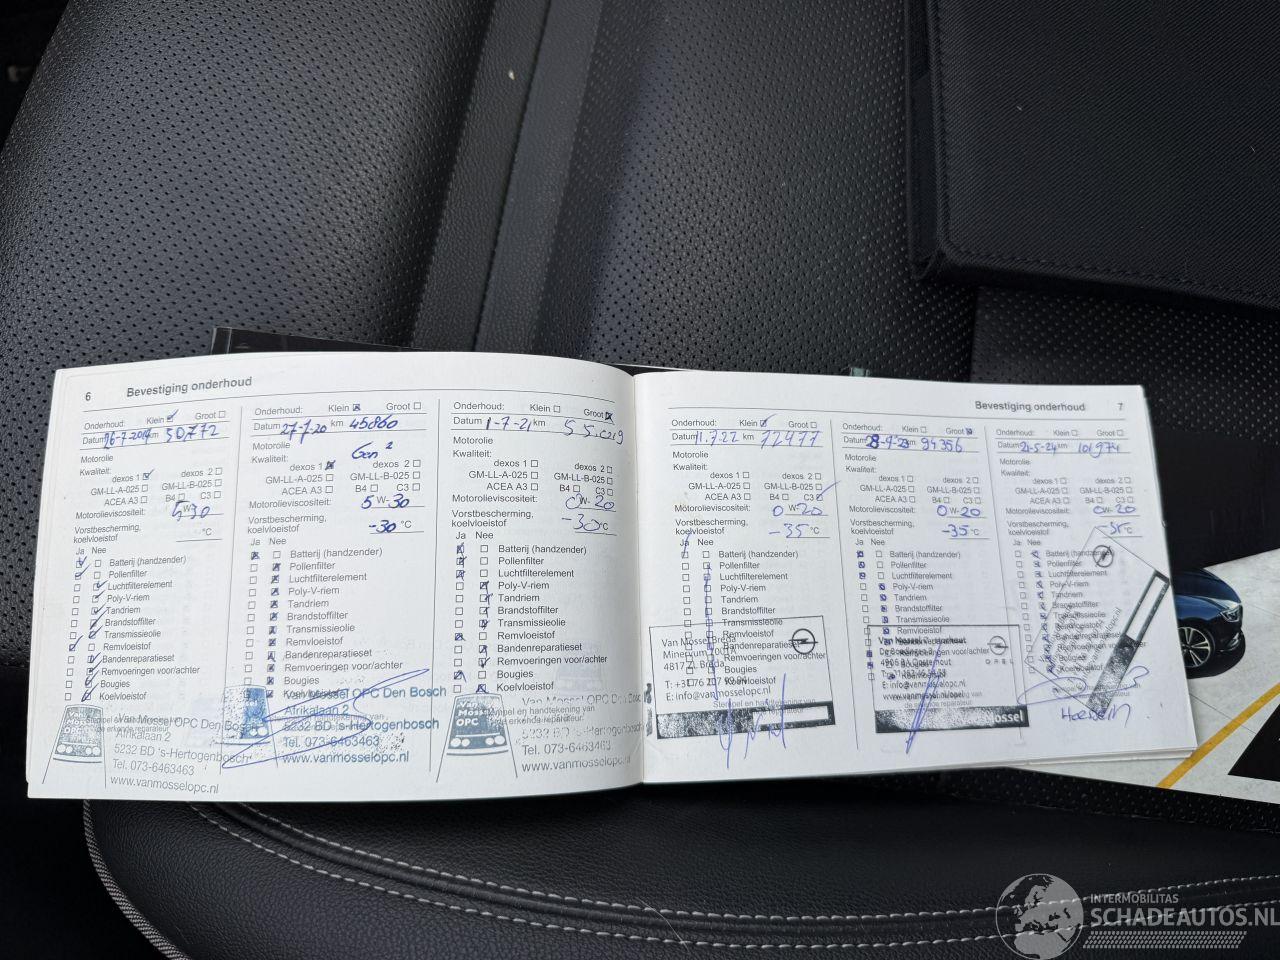 6 Bevestiging onderhoud
Onderhoud: Klein Groot
Datum km 30772
Motorolie
Kwaliteit:
dexos 1 dexos 2
GM-LL-A-025 GM-LL-B-025
ACEA A3 B4 C3
Motorolieviscositeit: 5 W- 30
Vorstbescherming,
koelvloeistof °C
Ja Nee
Batterij (handzender)
Pollenfilter
Luchtfilterelement
Poly-V-riem
Tandriem
Brandstoffilter
Transmissieolie
Remvloeistof
Bandenreparatieset
Remvoeringen voor/achter
Bougies
Koelvloeistof
Van Mossel OPC Den Bosch
Afrikalaan 2
5232 BD 's-Hertogenbosch
Tel. 073-6463463
www.vanmosselopc.nl
Onderhoud: Klein Groot
Datum 27-7-20 km 45860
Motorolie Gen 2
Kwaliteit:
dexos 1 dexos 2
GM-LL-A-025 GM-LL-B-025
ACEA A3 B4 C3
Motorolieviscositeit: 5 W- 30
Vorstbescherming,
koelvloeistof -30 °C
Ja Nee
Batterij (handzender)
Pollenfilter
Luchtfilterelement
Poly-V-riem
Tandriem
Brandstoffilter
Transmissieolie
Remvloeistof
Bandenreparatieset
Remvoeringen voor/achter
Bougies
Koelvloeistof
Van Mossel OPC Den Bosch
Afrikalaan 2
5232 BD 's-Hertogenbosch
Tel. 073-6463463
www.vanmosselopc.nl
Onderhoud: Klein Groot
Datum 1-7-21 km
Motorolie
Kwaliteit:
dexos 1 dexos 2
GM-LL-A-025 GM-LL-B-025
ACEA A3 B4 C3
Motorolieviscositeit: 0 W- 20
Vorstbescherming,
koelvloeistof -30 °C
Ja Nee
Batterij (handzender)
Pollenfilter
Luchtfilterelement
Poly-V-riem
Tandriem
Brandstoffilter
Transmissieolie
Remvloeistof
Bandenreparatieset
Remvoeringen voor/achter
Bougies
Koelvloeistof
Van Mossel OPC Den Bosch
Stempel en handtekening van
de erkende reparateur:
5232 BD 's-Hertogenbosch
Tel. 073-6463463
www.vanmosselopc.nl
Bevestiging onderhoud 7
Onderhoud: Klein Groot
Datum 11.7.22 km 72477
Motorolie
Kwaliteit:
dexos 1 dexos 2
GM-LL-A-025 GM-LL-B-025
ACEA A3 B4 C3
Motorolieviscositeit: 0 W- 20
Vorstbescherming,
koelvloeistof -35 °C
Ja Nee
Batterij (handzender)
Pollenfilter
Luchtfilterelement
Poly-V-riem
Tandriem
Brandstoffilter
Transmissieolie
Remvloeistof
Bandenreparatieset
Remvoeringen voor/achter
Bougies
Koelvloeistof
Van Mossel Breda
Minervum 7001A
4817 ZL Breda
E: info@vanmosselopel.nl
Stempel en handtekening van
Onderhoud: Klein Groot
Datum km 94356
Motorolie
Kwaliteit:
dexos 1 dexos 2
GM-LL-A-025 GM-LL-B-025
ACEA A3 B4 C3
Motorolieviscositeit: 0 W- 20
Vorstbescherming,
koelvloeistof -35 °C
Ja Nee
Batterij (handzender)
Pollenfilter
Luchtfilterelement
Poly-V-riem
Tandriem
Brandstoffilter
Transmissieolie
Remvloeistof
Remvoeringen voor/achter
Bougies
Koelvloeistof
Van Mossel Oosterhout
OPEL
E: info@vanmosselopel.nl
www.vanmosselopel.nl
de erkende reparateur:
Mossel
Onderhoud: Klein Groot
Datum 21-5-24 km 101974
Motorolie
Kwaliteit:
dexos 1 dexos 2
GM-LL-A-025 GM-LL-B-025
ACEA A3 B4 C3
Motorolieviscositeit: 0 W- 20
Vorstbescherming,
koelvloeistof -35 °C
Ja Nee
Batterij (handzender)
Pollenfilter
Luchtfilterelement
Poly-V-riem
Tandriem
Brandstoffilter
Transmissieolie
Remvloeistof
Bandenreparatieset
Remvoeringen voor/achter
Bougies
Koelvloeistof
INTERMOBILITAS
SCHADEAUTOS.NL